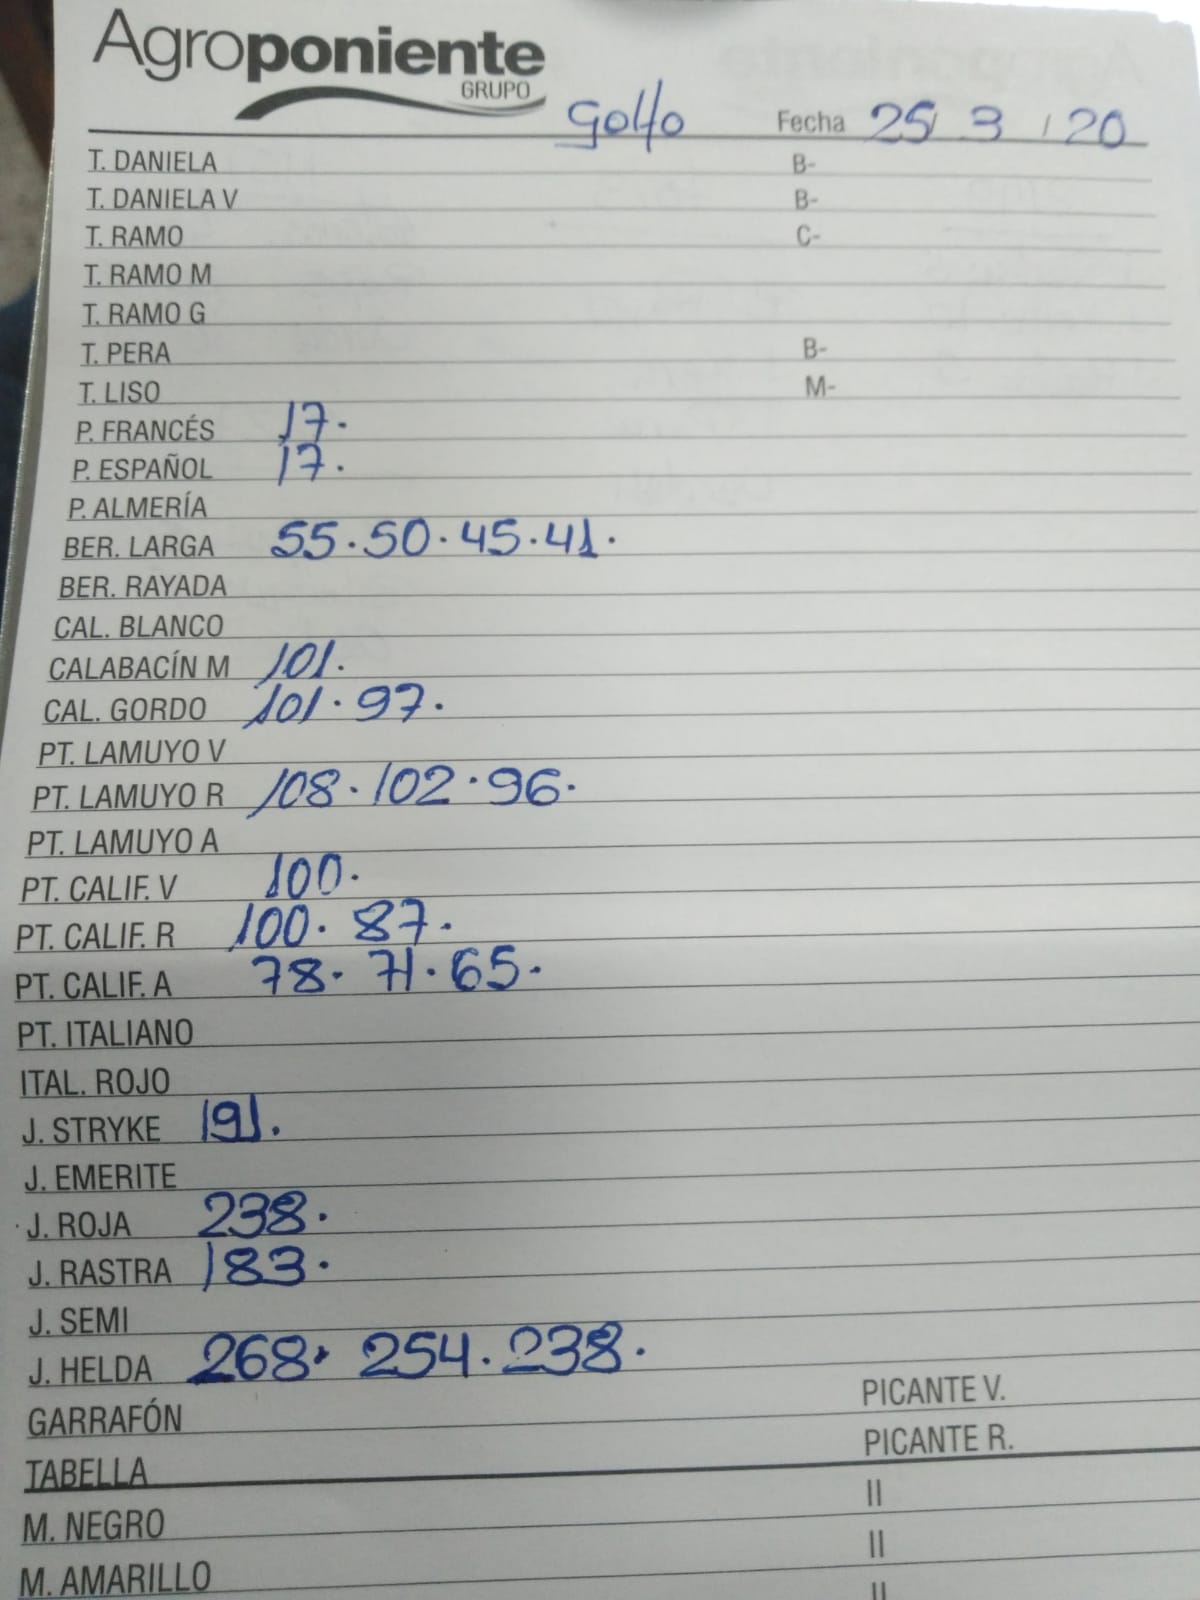 Agroponiente
GRUPO
Golfo Fecha 25/ 3 / 20
T. DANIELA B-
T. DANIELA V B-
T. RAMO C-
T. RAMO M
T. RAMO G
T. PERA B-
T. LISO M-
P. FRANCÉS 17.
P. ESPAÑOL 17.
P. ALMERÍA
BER. LARGA 55.50.45.41.
BER. RAYADA
CAL. BLANCO
CALABACÍN M 101.
CAL. GORDO 101.97.
PT. LAMUYO V
PT. LAMUYO R 108.102.96.
PT. LAMUYO A
PT. CALIF. V 100.
PT. CALIF. R 100. 87.
PT. CALIF. A 78. 71.65.
PT. ITALIANO
ITAL. ROJO
J. STRYKE 191.
J. EMERITE
J. ROJA 238.
J. RASTRA 183.
J. SEMI
J. HELDA 268. 254.238.
GARRAFÓN PICANTE V.
TABELLA PICANTE R.
M. NEGRO II
M. AMARILLO II
II